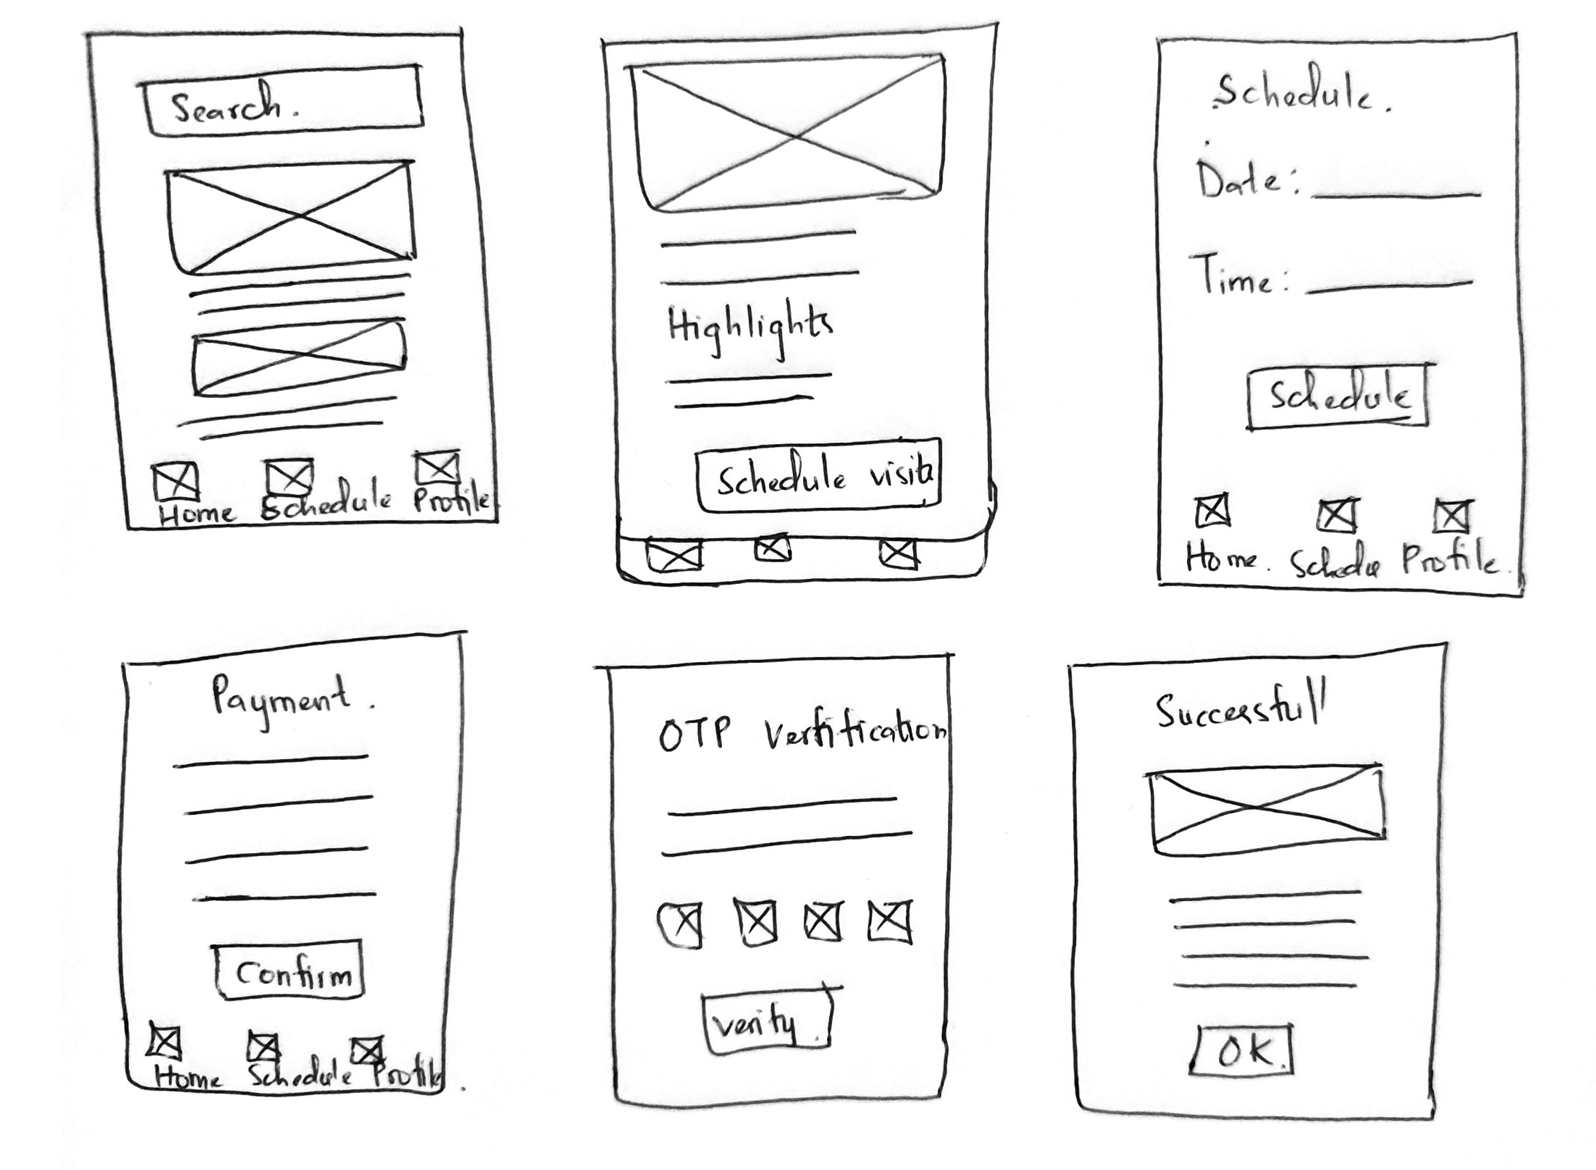 Search.
Home Schedule Profile
Highlights
Schedule visit
Schedule.
Date:
Time:
Schedule
Home. Schedu Profile.
Payment.
Confirm
Home Schedule Profile
OTP Verfification
Verify.
Successfull
OK.